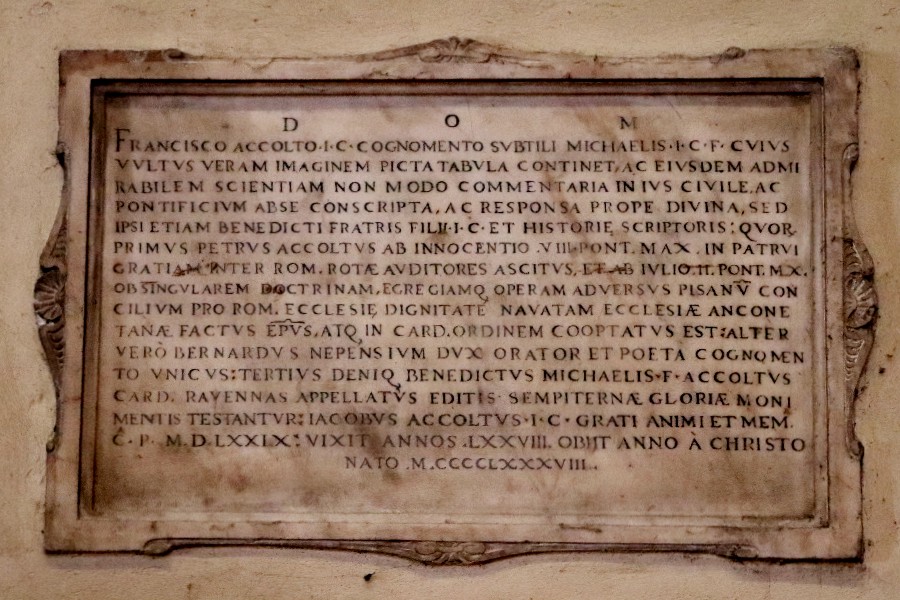 D O M
FRANCISCO ACCOLTO·I·C·COGNOMENTO SVBTILI MICHAELIS·I·C·F·CVIVS
VVLTVS VERAM IMAGINEM PICTA TABVLA CONTINET, AC EIVSDEM ADMI
RABILEM SCIENTIAM NON MODO COMMENTARIA IN IVS CIVILE, AC
PONTIFICIVM ABSE CONSCRIPTA, AC RESPONSA PROPE DIVINA, SED
IPSI ETIAM BENEDICTI FRATRIS FILII·I·C·ET HISTORIĘ SCRIPTORIS: QVOR
PRIMVS PETRVS ACCOLTVS AB INNOCENTIO .VIII·PONT. MAX. IN PATRVI
GRATIAM INTER ROM. ROTÆ AVDITORES ASCITVS, ET AB IVLIO.II. PONT. MX.
OB SINGVLAREM DOCTRINAM, EGREGIAMQ OPERAM ADVERSVS PISANV̄ CON
CILIVM PRO ROM. ECCLESIĘ DIGNITATE NAVATAM ECCLESIÆ ANCONE
TANÆ FACTVS EP̄VS, ATQ IN CARD. ORDINEM COOPTATVS EST: ALTER
VERÒ BERNARDVS NEPENSIVM DVX ORATOR ET POETA COGNOMEN
TO VNICVS: TERTIVS DENIQ BENEDICTVS MICHAELIS·F·ACCOLTVS
CARD. RAVENNAS APPELLATVS EDITIS SEMPITERNÆ GLORIÆ MONI
MENTIS TESTANTVR: IACOBVS ACCOLTVS·I·C·GRATI ANIMI ET MEM.
C·P·M.D.LXXIX: VIXIT ANNOS .LXXVIII. OBIIT ANNO À CHRISTO
NATO .M.CCCCCLXXXVIII.